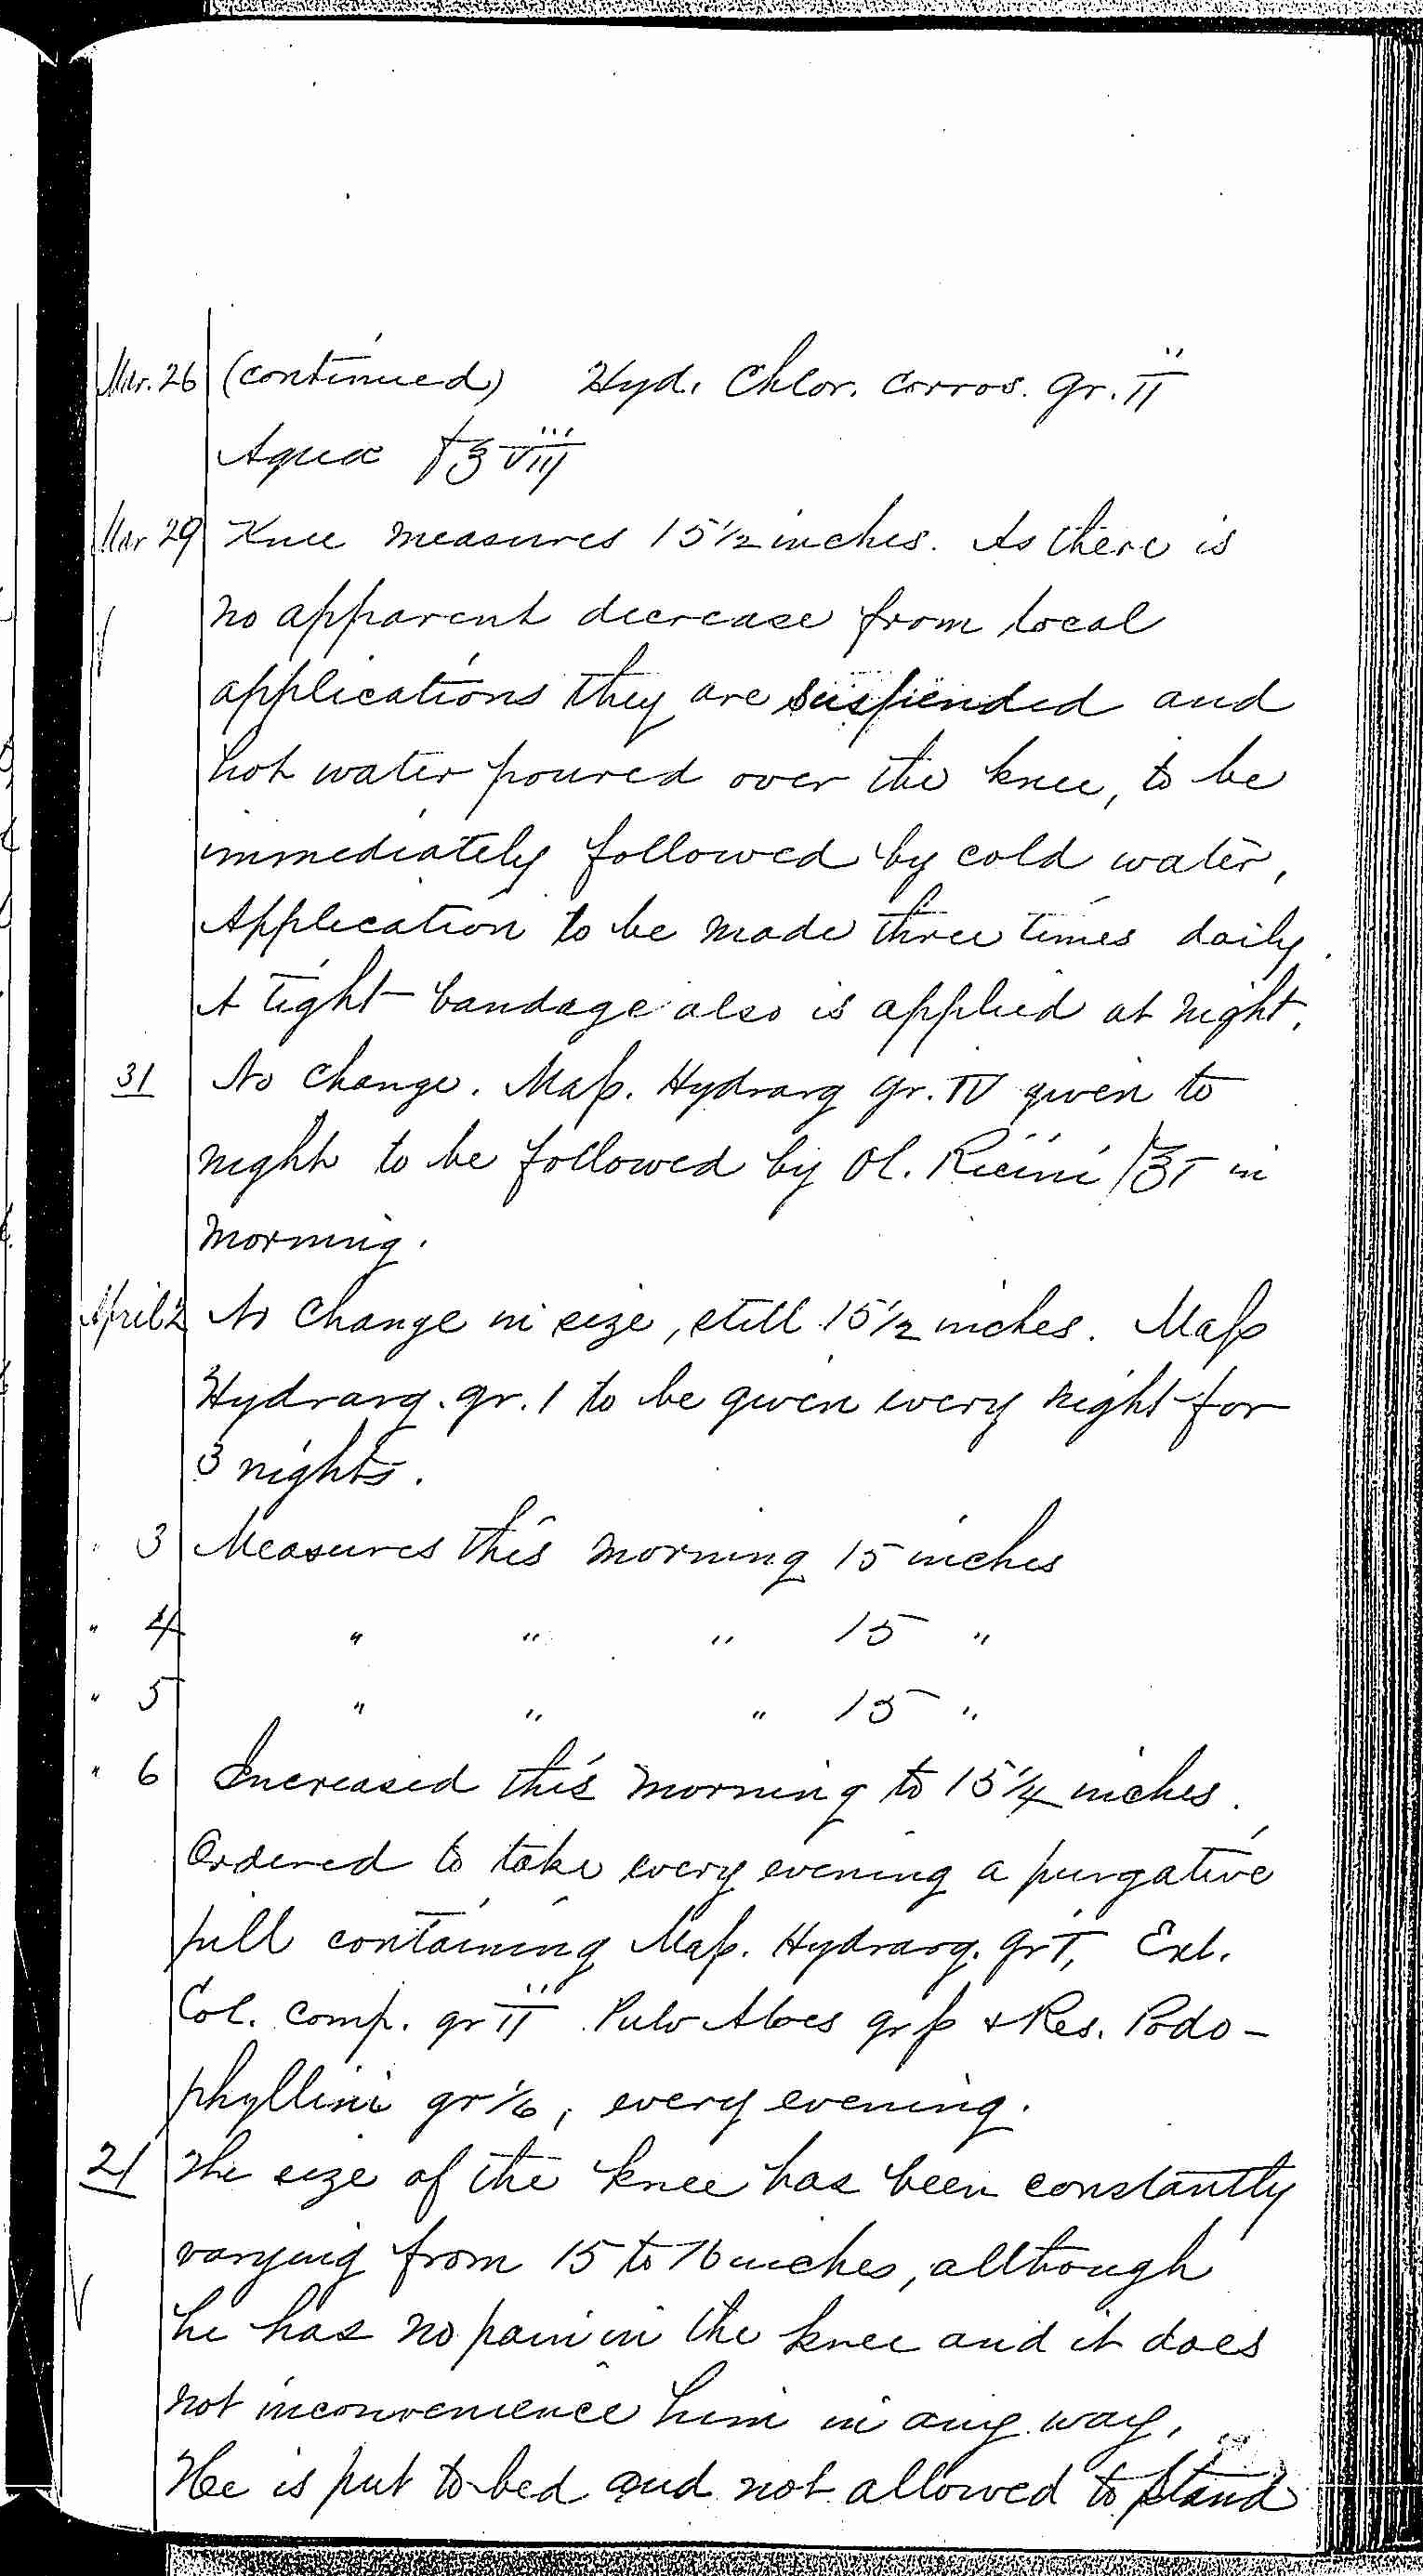 Mar. 26 (continued) Hyd. Chlor. Corros. gr. II
Aqua f℥ VIII
Mar 29 Knee measures 15 1/2 inches. As there is
no apparent decrease from local
applications they are suspended and
hot water poured over the knee, to be
immediately followed by cold water,
Application to be made three times daily.
A tight bandage also is applied at night.
31 No change. Maſs. Hydrarg gr. IV given to
night to be followed by Ol. Ricini f℥I in
morning.
April 2 No change in size, still 15 1/2 inches. Maſs
Hydrarg. gr. I to be given every night for
3 nights.
" 3 Measures this morning 15 inches
" 4 " " " 15 "
" 5 " " " 15 "
" 6 Increased this morning to 15 1/4 inches.
Ordered to take every evening a purgative
pill containing Maſs. Hydrarg. gr I, Ext.
Col. comp. gr II Pulv Aloes gr ſs & Res. Podo-
phyllini gr 1/6, every evening.
21 The size of the knee has been constantly
varying from 15 to 16 inches, although
he has no pain in the knee and it does
not inconvenience him in any way.
He is put to bed and not allowed to stand